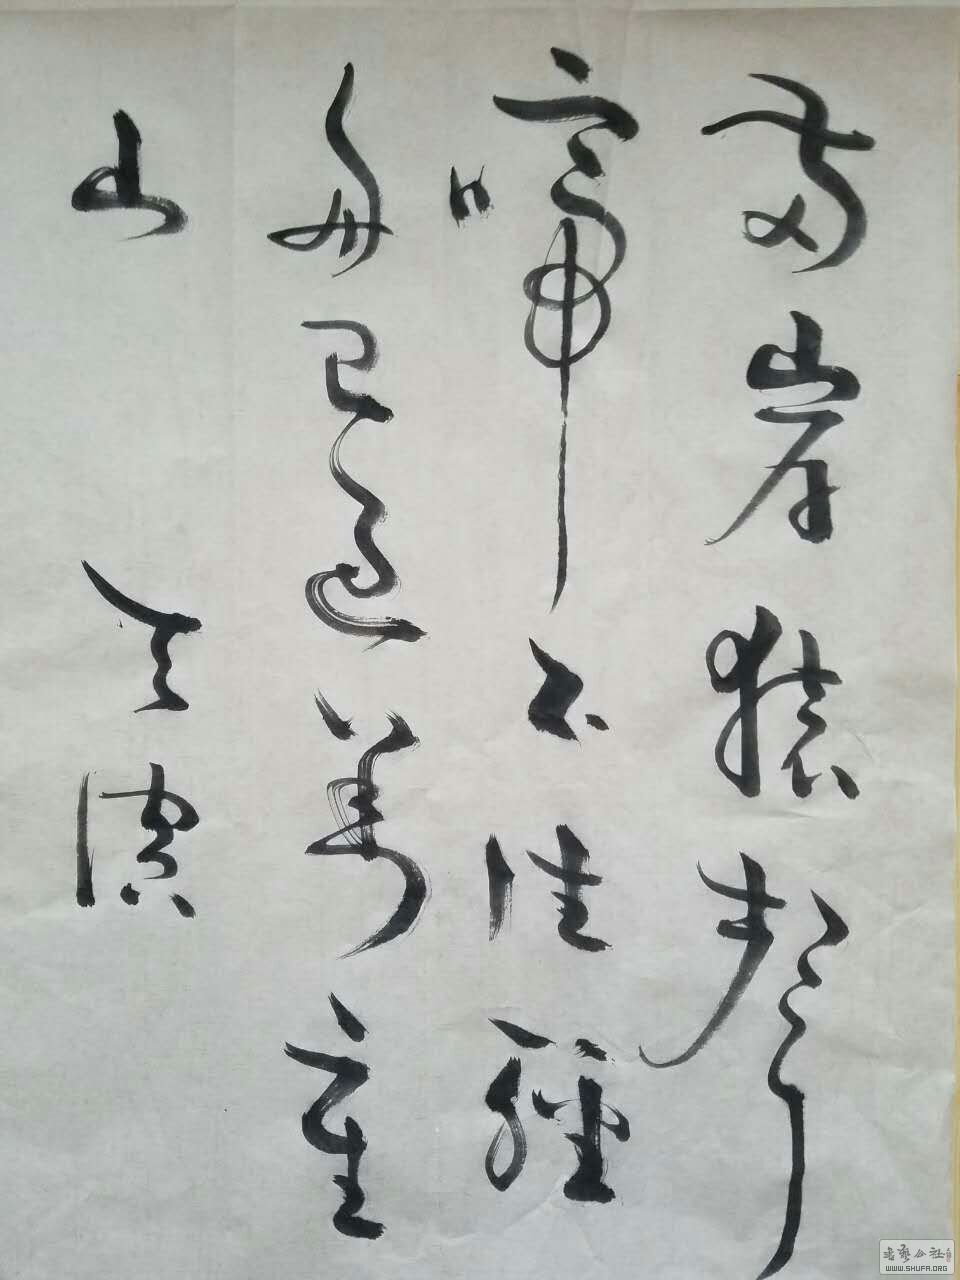 兩岸猿聲
啼不住輕
舟已過萬重
山 天
書藝公社
WWW.SHUFA.ORG